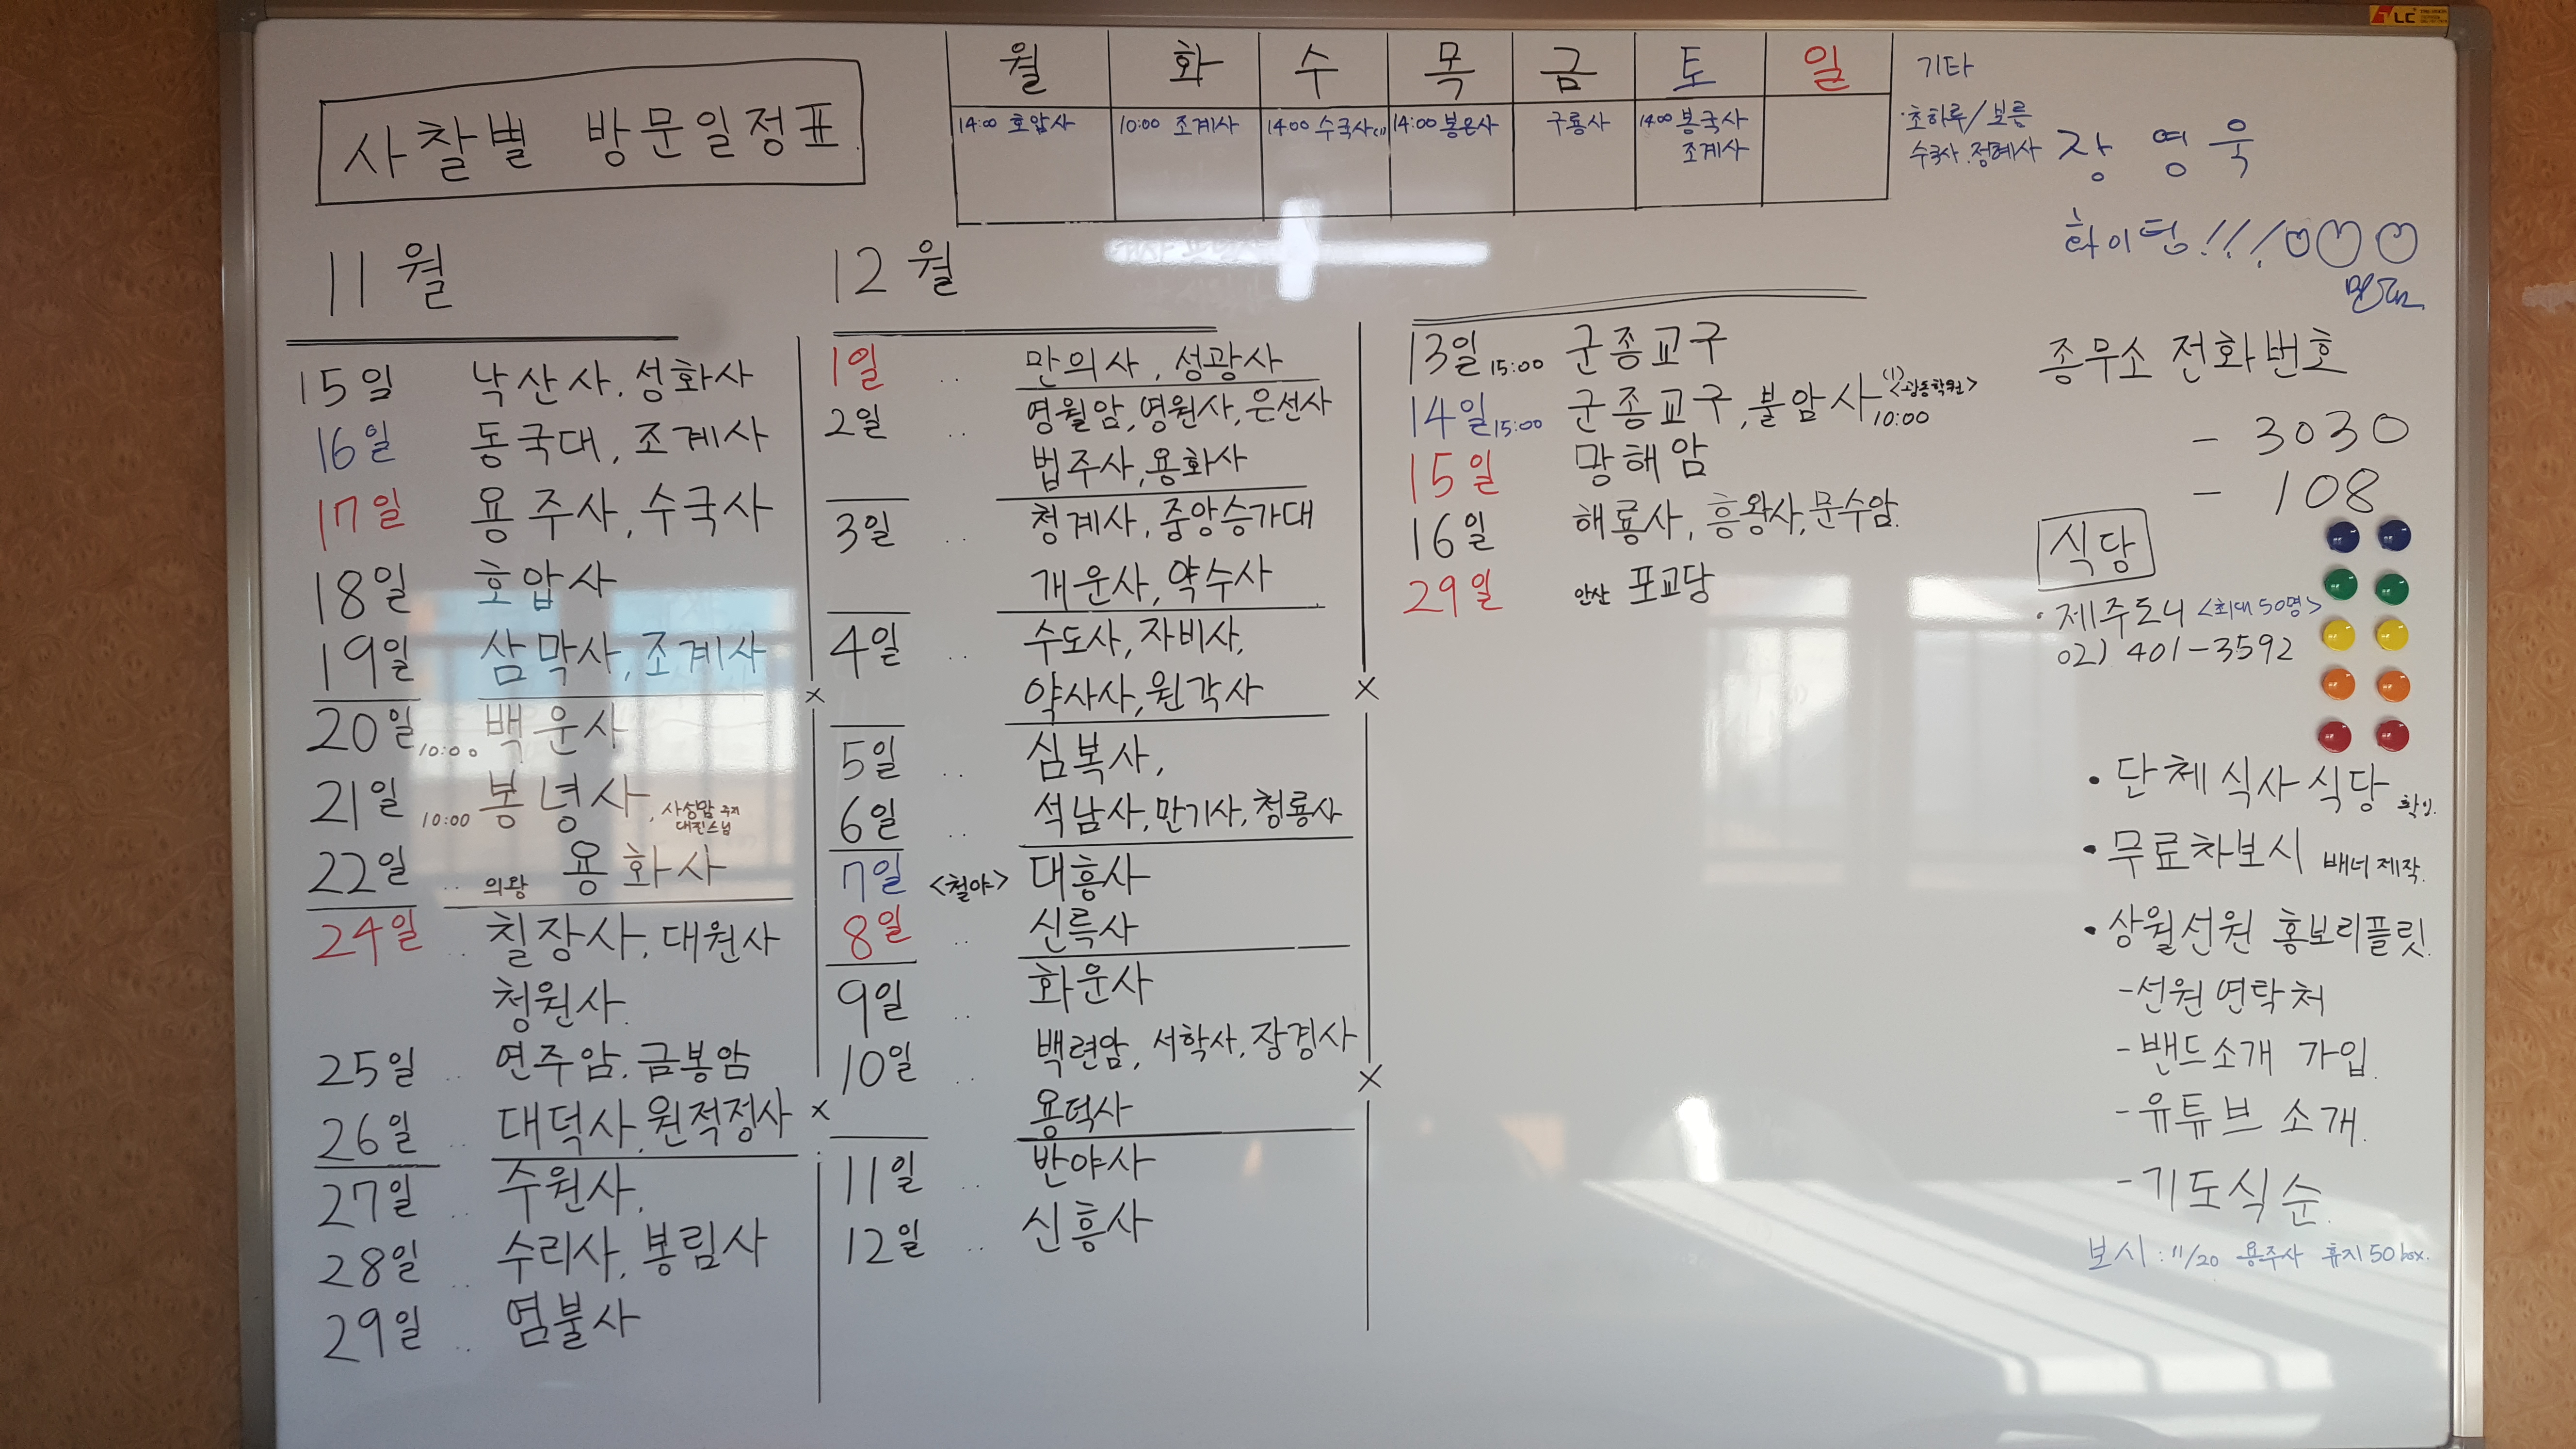 사찰별 방문일정표
월 화 수 목 금 토 일 기타
14:00 호압사
10:00 조계사
14:00 수국사(1)
14:00 봉은사
구룡사
14:00 봉국사
조계사
·초하루/보름
수국사.정혜사
장영욱
화이팅!!!
11월
15일 낙산사.성화사
16일 동국대, 조계사
17일 용주사, 수국사
18일 호압사
19일 삼막사, 조계사
20일 10:00 백운사
21일 10:00 봉녕사, 사성암 주지
대진스님
22일 .. 의왕 용화사
24일 .. 칠장사. 대원사
청원사.
25일 .. 연주암.금봉암
26일 .. 대덕사.원적정사
27일 .. 수원사.
28일 .. 수리사. 봉림사
29일 .. 염불사
12월
1일 .. 만의사, 성광사
2일 .. 영월암,영원사,은선사
법주사,용화사
3일 .. 청계사, 중앙승가대
개운사, 약수사
4일 .. 수도사, 자비사,
약사사,원각사
5일 .. 심복사,
6일 .. 석남사,만기사,청룡사
7일 <철야> 대흥사
8일 .. 신륵사
9일 .. 화운사
10일 .. 백련암, 서학사.장경사
용덕사
11일 .. 반야사
12일 .. 신흥사
13일 15:00 군종교구
14일 15:00 군종교구,불암사 (1)<광동학원>
10:00
15일 망해암
16일 해룡사, 흥왕사,문수암.
29일 안산 포교당
종무소 전화번호
- 3030
- 108
식당
·제주도니 <최대 50명>
02) 401-3592
• 단체식사식당 확인.
• 무료차보시 배너 제작.
• 상월선원 홍보리플릿.
-선원연락처
-밴드소개 가입.
-유튜브 소개.
-기도식순.
보시 : 11/20 용주사 휴지 50 box.